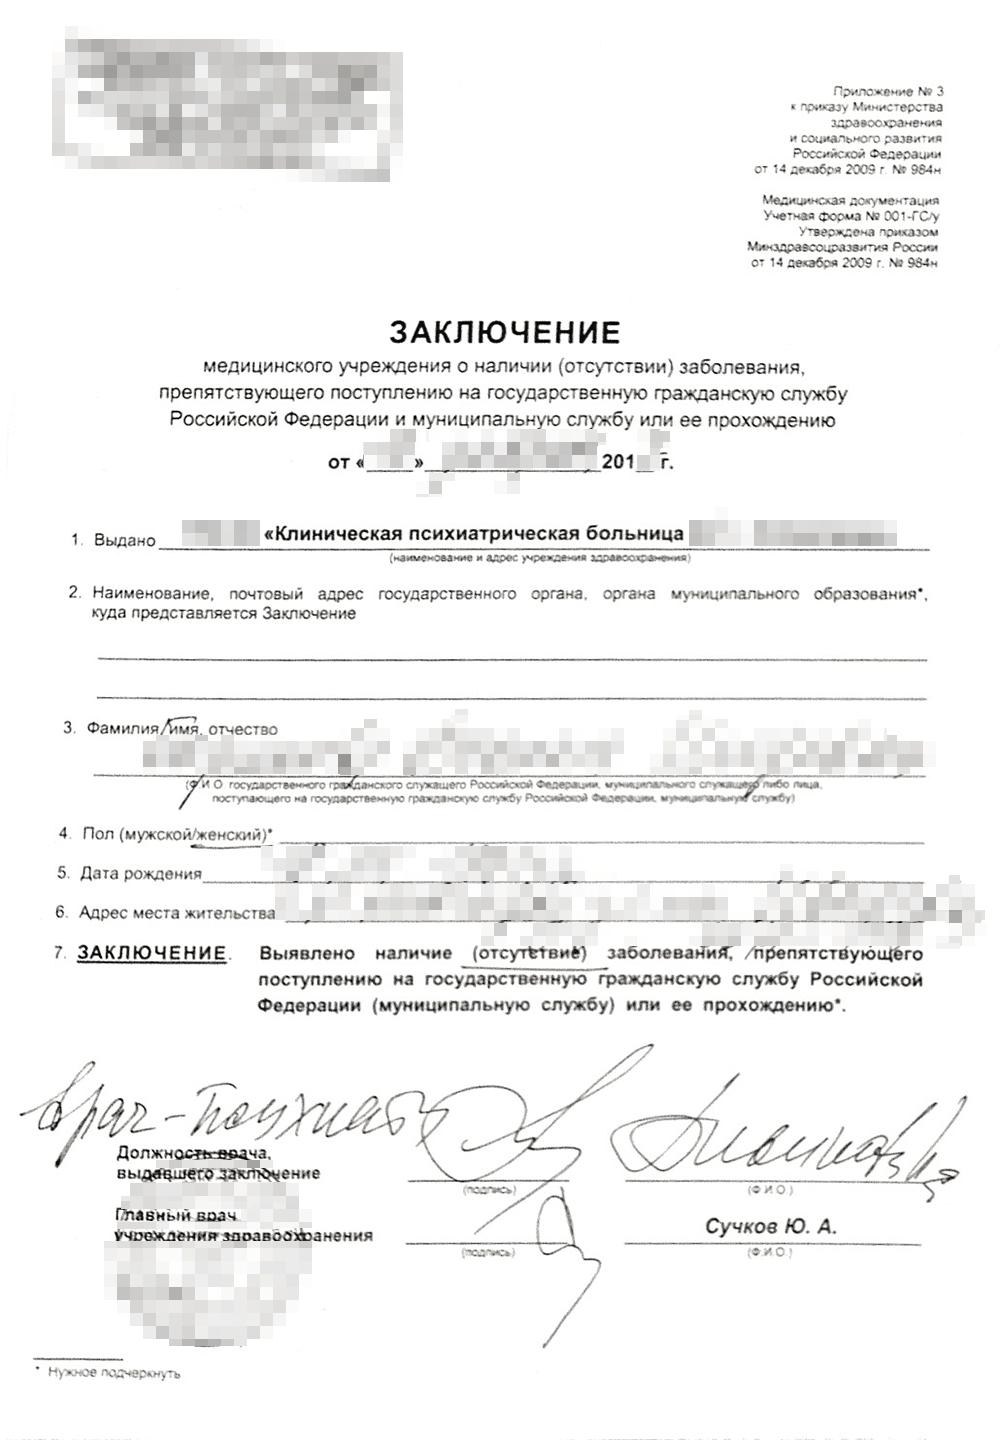 Приложение № 3
к приказу Министерства
здравоохранения
и социального развития
Российской Федерации
от 14 декабря 2009 г. № 984н
Медицинская документация
Учетная форма № 001-ГС/у
Утверждена приказом
Минздравсоцразвития России
от 14 декабря 2009 г. № 984н
ЗАКЛЮЧЕНИЕ
медицинского учреждения о наличии (отсутствии) заболевания,
препятствующего поступлению на государственную гражданскую службу
Российской Федерации и муниципальную службу или ее прохождению
от « » 201 г.
1. Выдано «Клиническая психиатрическая больница
(наименование и адрес учреждения здравоохранения)
2. Наименование, почтовый адрес государственного органа, органа муниципального образования*,
куда представляется Заключение
3. Фамилия, имя, отчество
(Ф И О государственного гражданского служащего Российской Федерации, муниципального служащего либо лица,
поступающего на государственную гражданскую службу Российской Федерации, муниципальную службу)
4. Пол (мужской/женский)*
5. Дата рождения
6. Адрес места жительства
7. ЗАКЛЮЧЕНИЕ. Выявлено наличие (отсутствие) заболевания, препятствующего
поступлению на государственную гражданскую службу Российской
Федерации (муниципальную службу) или ее прохождению*.
Врач-психиатр
Должность врача,
выдавшего заключение
(подпись) (Ф.И.О.)
Главный врач
учреждения здравоохранения Сучков Ю. А.
(подпись) (Ф.И.О.)
* Нужное подчеркнуть